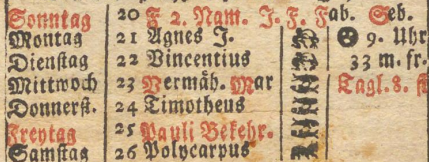 Sonntag 20 F 2. Nam. J. F. Fab. Seb.
Montag 21 Agnes J. 9. Uhr
Dienstag 22 Vincentius 33 m. fr.
Mittwoch 23 Vermäh. Mar Tagl. 8. st
Donnerst. 24 Timotheus
Freytag 25 Pauli Bekehr.
Samstag 26 Polycarpus